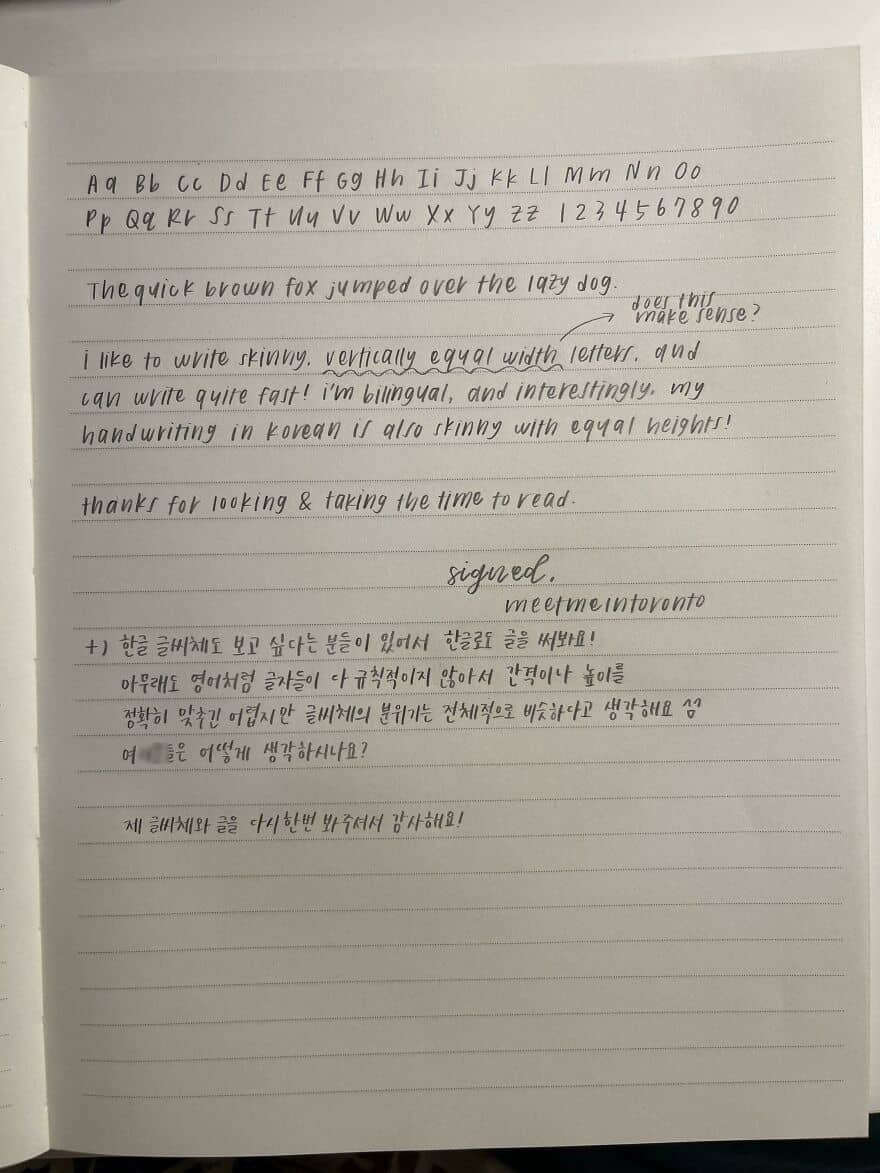 Aa Bb Cc Dd Ee Ff Gg Hh Ii Jj Kk Ll Mm Nn Oo
Pp Qq Rr Ss Tt Uu Vv Ww Xx Yy Zz 1234567890
The quick brown fox jumped over the lazy dog.
does this
make sense?
i like to write skinny, vertically equal width letters, and
can write quite fast! i'm bilingual, and interestingly, my
handwriting in korean is also skinny with equal heights!
thanks for looking & taking the time to read.
signed,
meetmeintoronto
+) 한글 글씨체도 보고 싶다는 분들이 있어서 한글로도 글을 써봐요!
아무래도 영어처럼 글자들이 다 규칙적이지 않아서 간격이나 높이를
정확히 맞추긴 어렵지만 글씨체의 분위기는 전체적으로 비슷하다고 생각해요
어떻게 생각하시나요?
제 글씨체와 글을 다시한번 봐주셔서 감사해요!